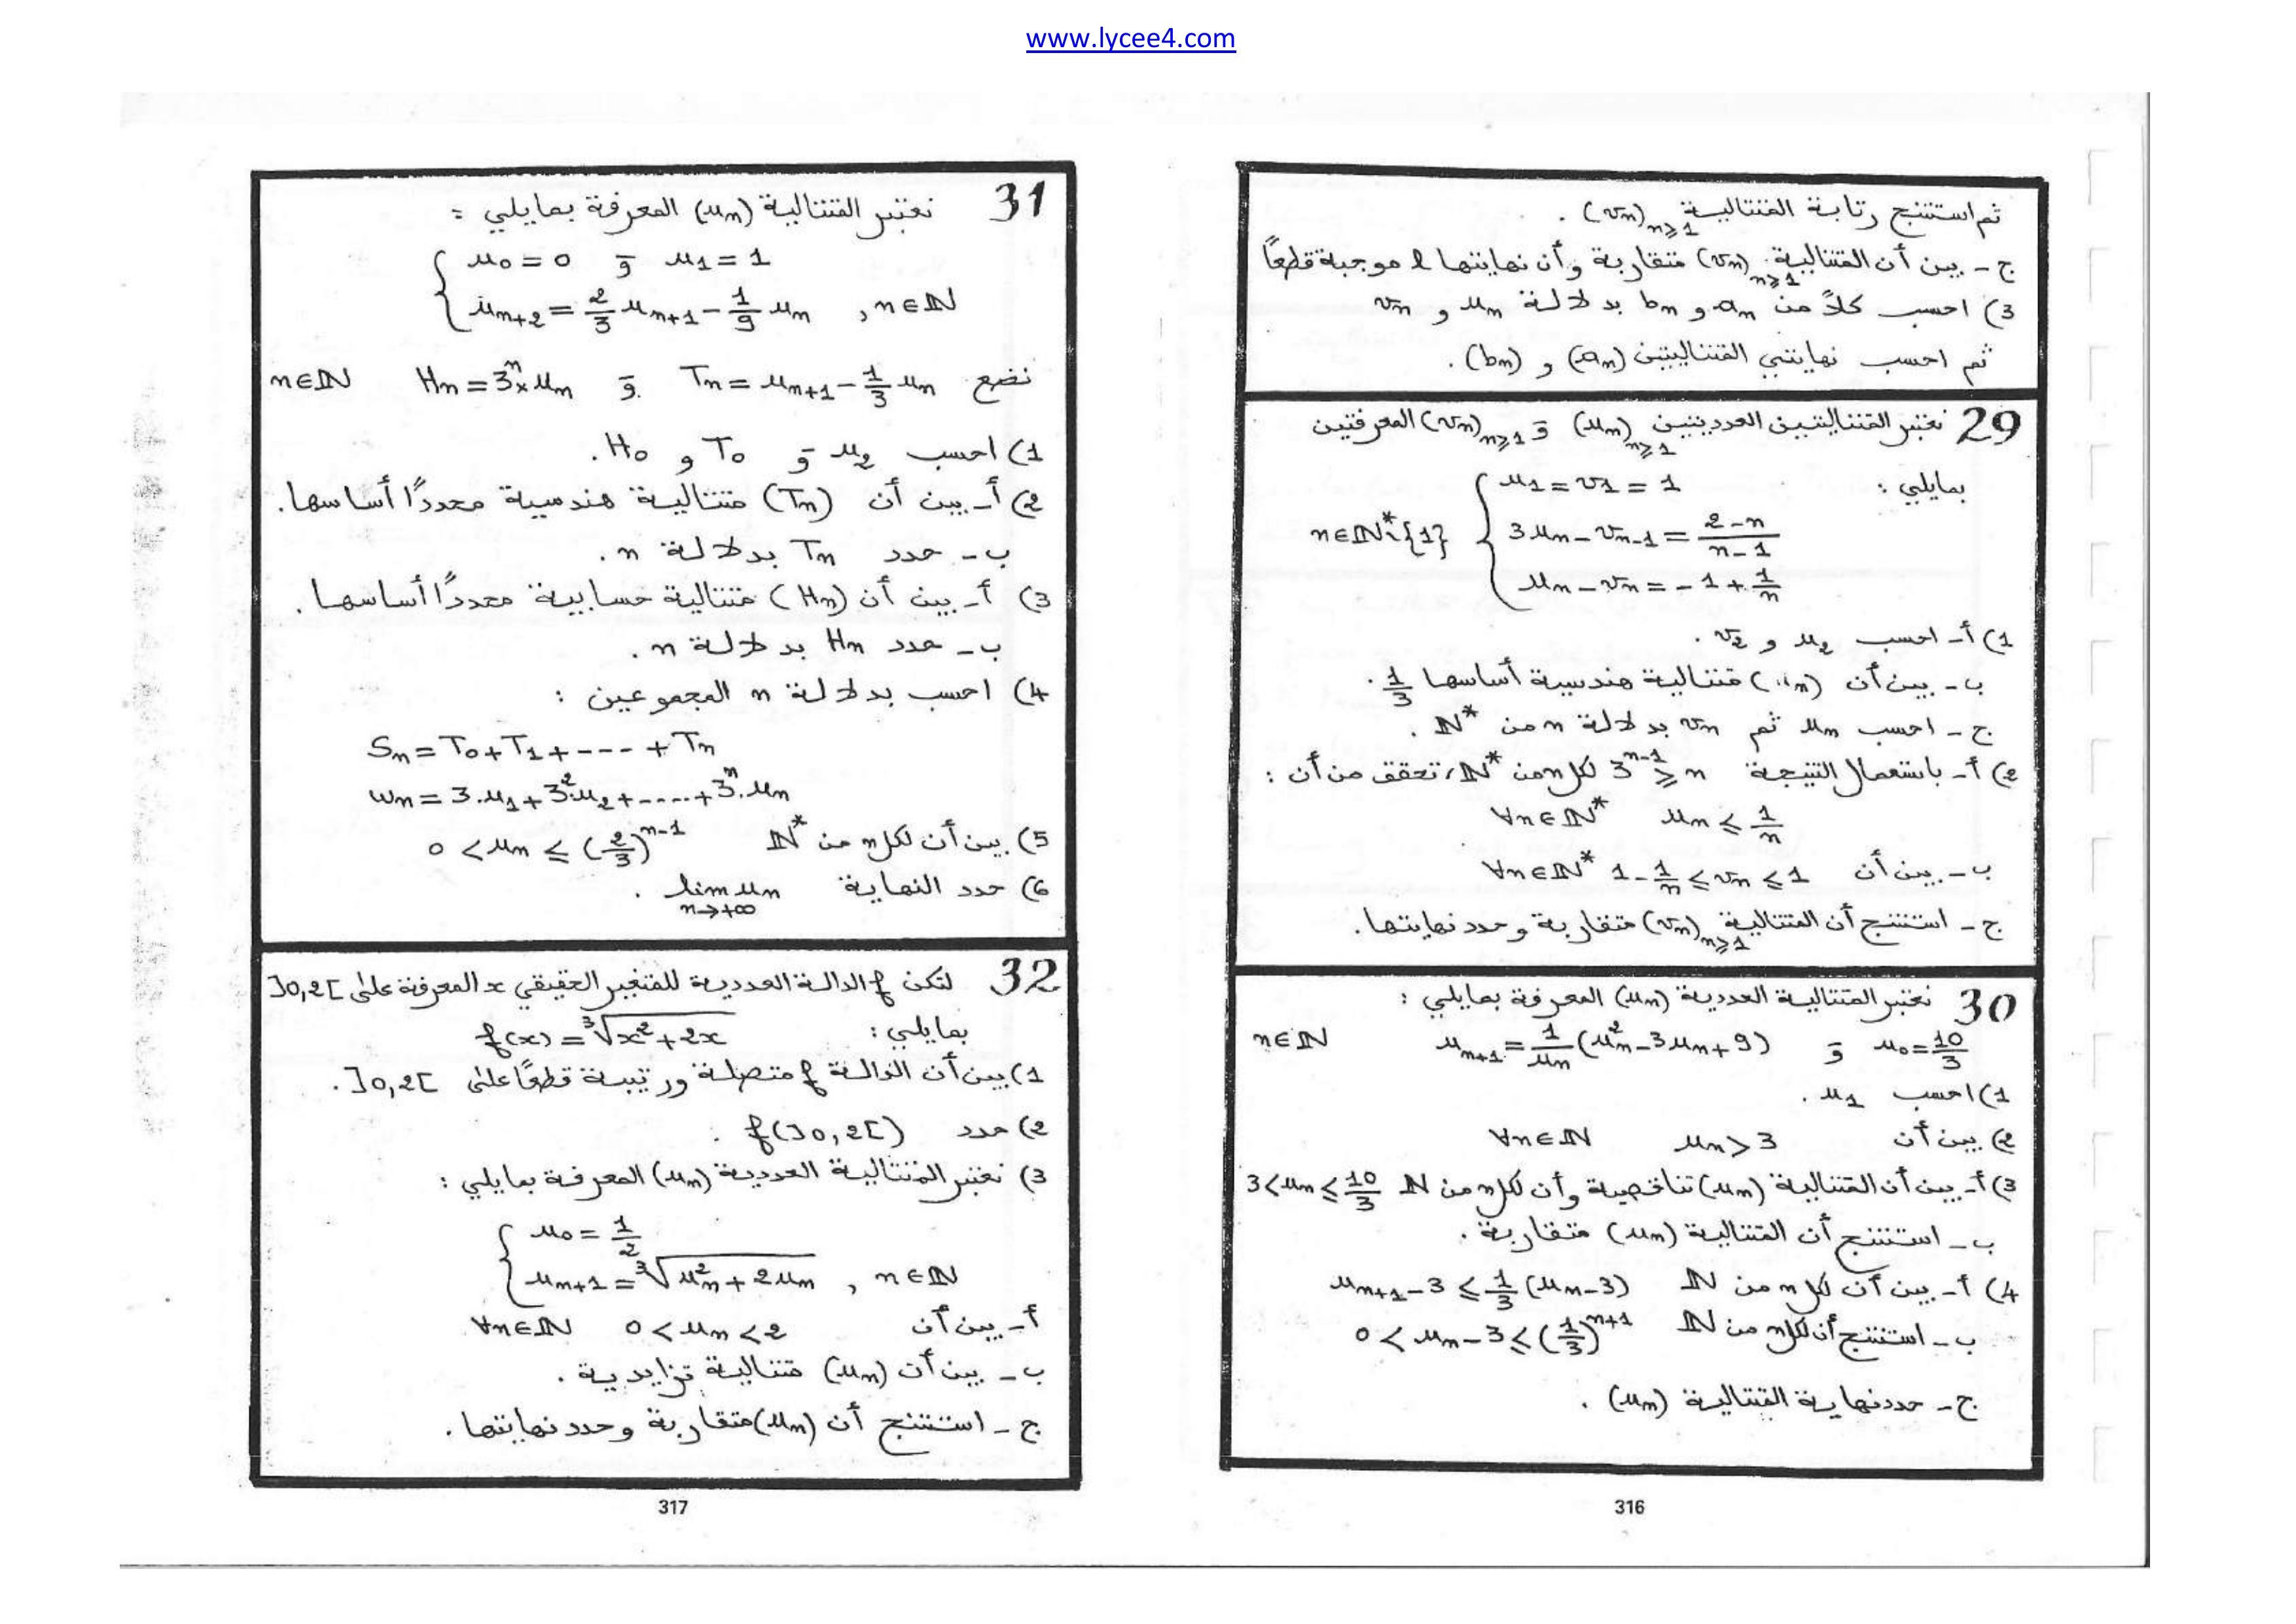 www.lycee4.com
ثم استنتج رتابة المتتالية (vn)n≥1 .
ج - بين أن المتتالية (vn)n≥1 متقاربة وأن نهايتها l موجبة قطعاً
3) احسب كلاً من an و bn بدلالة un و vn
ثم احسب نهايتي المتتاليتين (an) و (bn) .
29 نعتبر المتتاليتين العدديتين (un)n≥1 و (vn)n≥1 المعرفتين
بمايلي : u1 = v1 = 1
n∈ℕ*\{1} 3un - vn-1 = (2-n)/(n-1)
un - vn = -1 + 1/n
1) أ- احسب u2 و v2 .
ب - بين أن (un) متتالية هندسية أساسها 1/3 .
ج - احسب un ثم vn بدلالة n من ℕ* .
2) أ- باستعمال النتيجة 3^(n-1) ≥ n لكل n من ℕ*، تحقق من أن :
∀n∈ℕ* un ≤ 1/n
ب - بين أن ∀n∈ℕ* 1 - 1/n ≤ vn ≤ 1
ج - استنتج أن المتتالية (vn)n≥1 متقاربة وحدد نهايتها.
30 نعتبر المتتالية العددية (un) المعرفة بمايلي :
u0 = 10/3 و un+1 = 1/un (un² - 3un + 9) n∈ℕ
1) احسب u1 .
2) بين أن un > 3 ∀n∈ℕ
3) أ- بين أن المتتالية (un) تناقصية وأن لكل n من ℕ 3 < un ≤ 10/3
ب - استنتج أن المتتالية (un) متقاربة .
4) أ- بين أن لكل n من ℕ un+1 - 3 ≤ 1/3 (un - 3)
ب - استنتج أن لكل n من ℕ 0 < un - 3 ≤ (1/3)^(n+1)
ج - حدد نهاية المتتالية (un) .
316
31 نعتبر المتتالية (un) المعرفة بمايلي :
u0 = 0 و u1 = 1
un+2 = 2/3 un+1 - 1/9 un , n∈ℕ
نضع Tn = un+1 - 1/3 un و Hn = 3^n × un n∈ℕ
1) احسب u2 و T0 و H0 .
2) أ- بين أن (Tn) متتالية هندسية محدداً أساسها .
ب - حدد Tn بدلالة n .
3) أ- بين أن (Hn) متتالية حسابية محدداً أساسها .
ب - حدد Hn بدلالة n .
4) احسب بدلالة n المجموعين :
Sn = T0 + T1 + ---- + Tn
wn = 3.u1 + 3².u2 + ..... + 3^n.un
5) بين أن لكل n من ℕ* 0 < un ≤ (2/3)^(n-1)
6) حدد النهاية lim un n→+∞ .
32 لتكن f الدالة العددية للمتغير الحقيقي x المعرفة على ]0,2[
بمايلي : f(x) = ³√(x²+2x)
1) بين أن الدالة f متصلة ورتيبة قطعاً على ]0,2[ .
2) حدد f(]0,2[) .
3) نعتبر المتتالية العددية (un) المعرفة بمايلي :
u0 = 1/2
un+1 = ³√(un² + 2un) , n∈ℕ
أ- بين أن 0 < un < 2 ∀n∈ℕ
ب - بين أن (un) متتالية تزايدية .
ج - استنتج أن (un) متقاربة وحدد نهايتها .
317